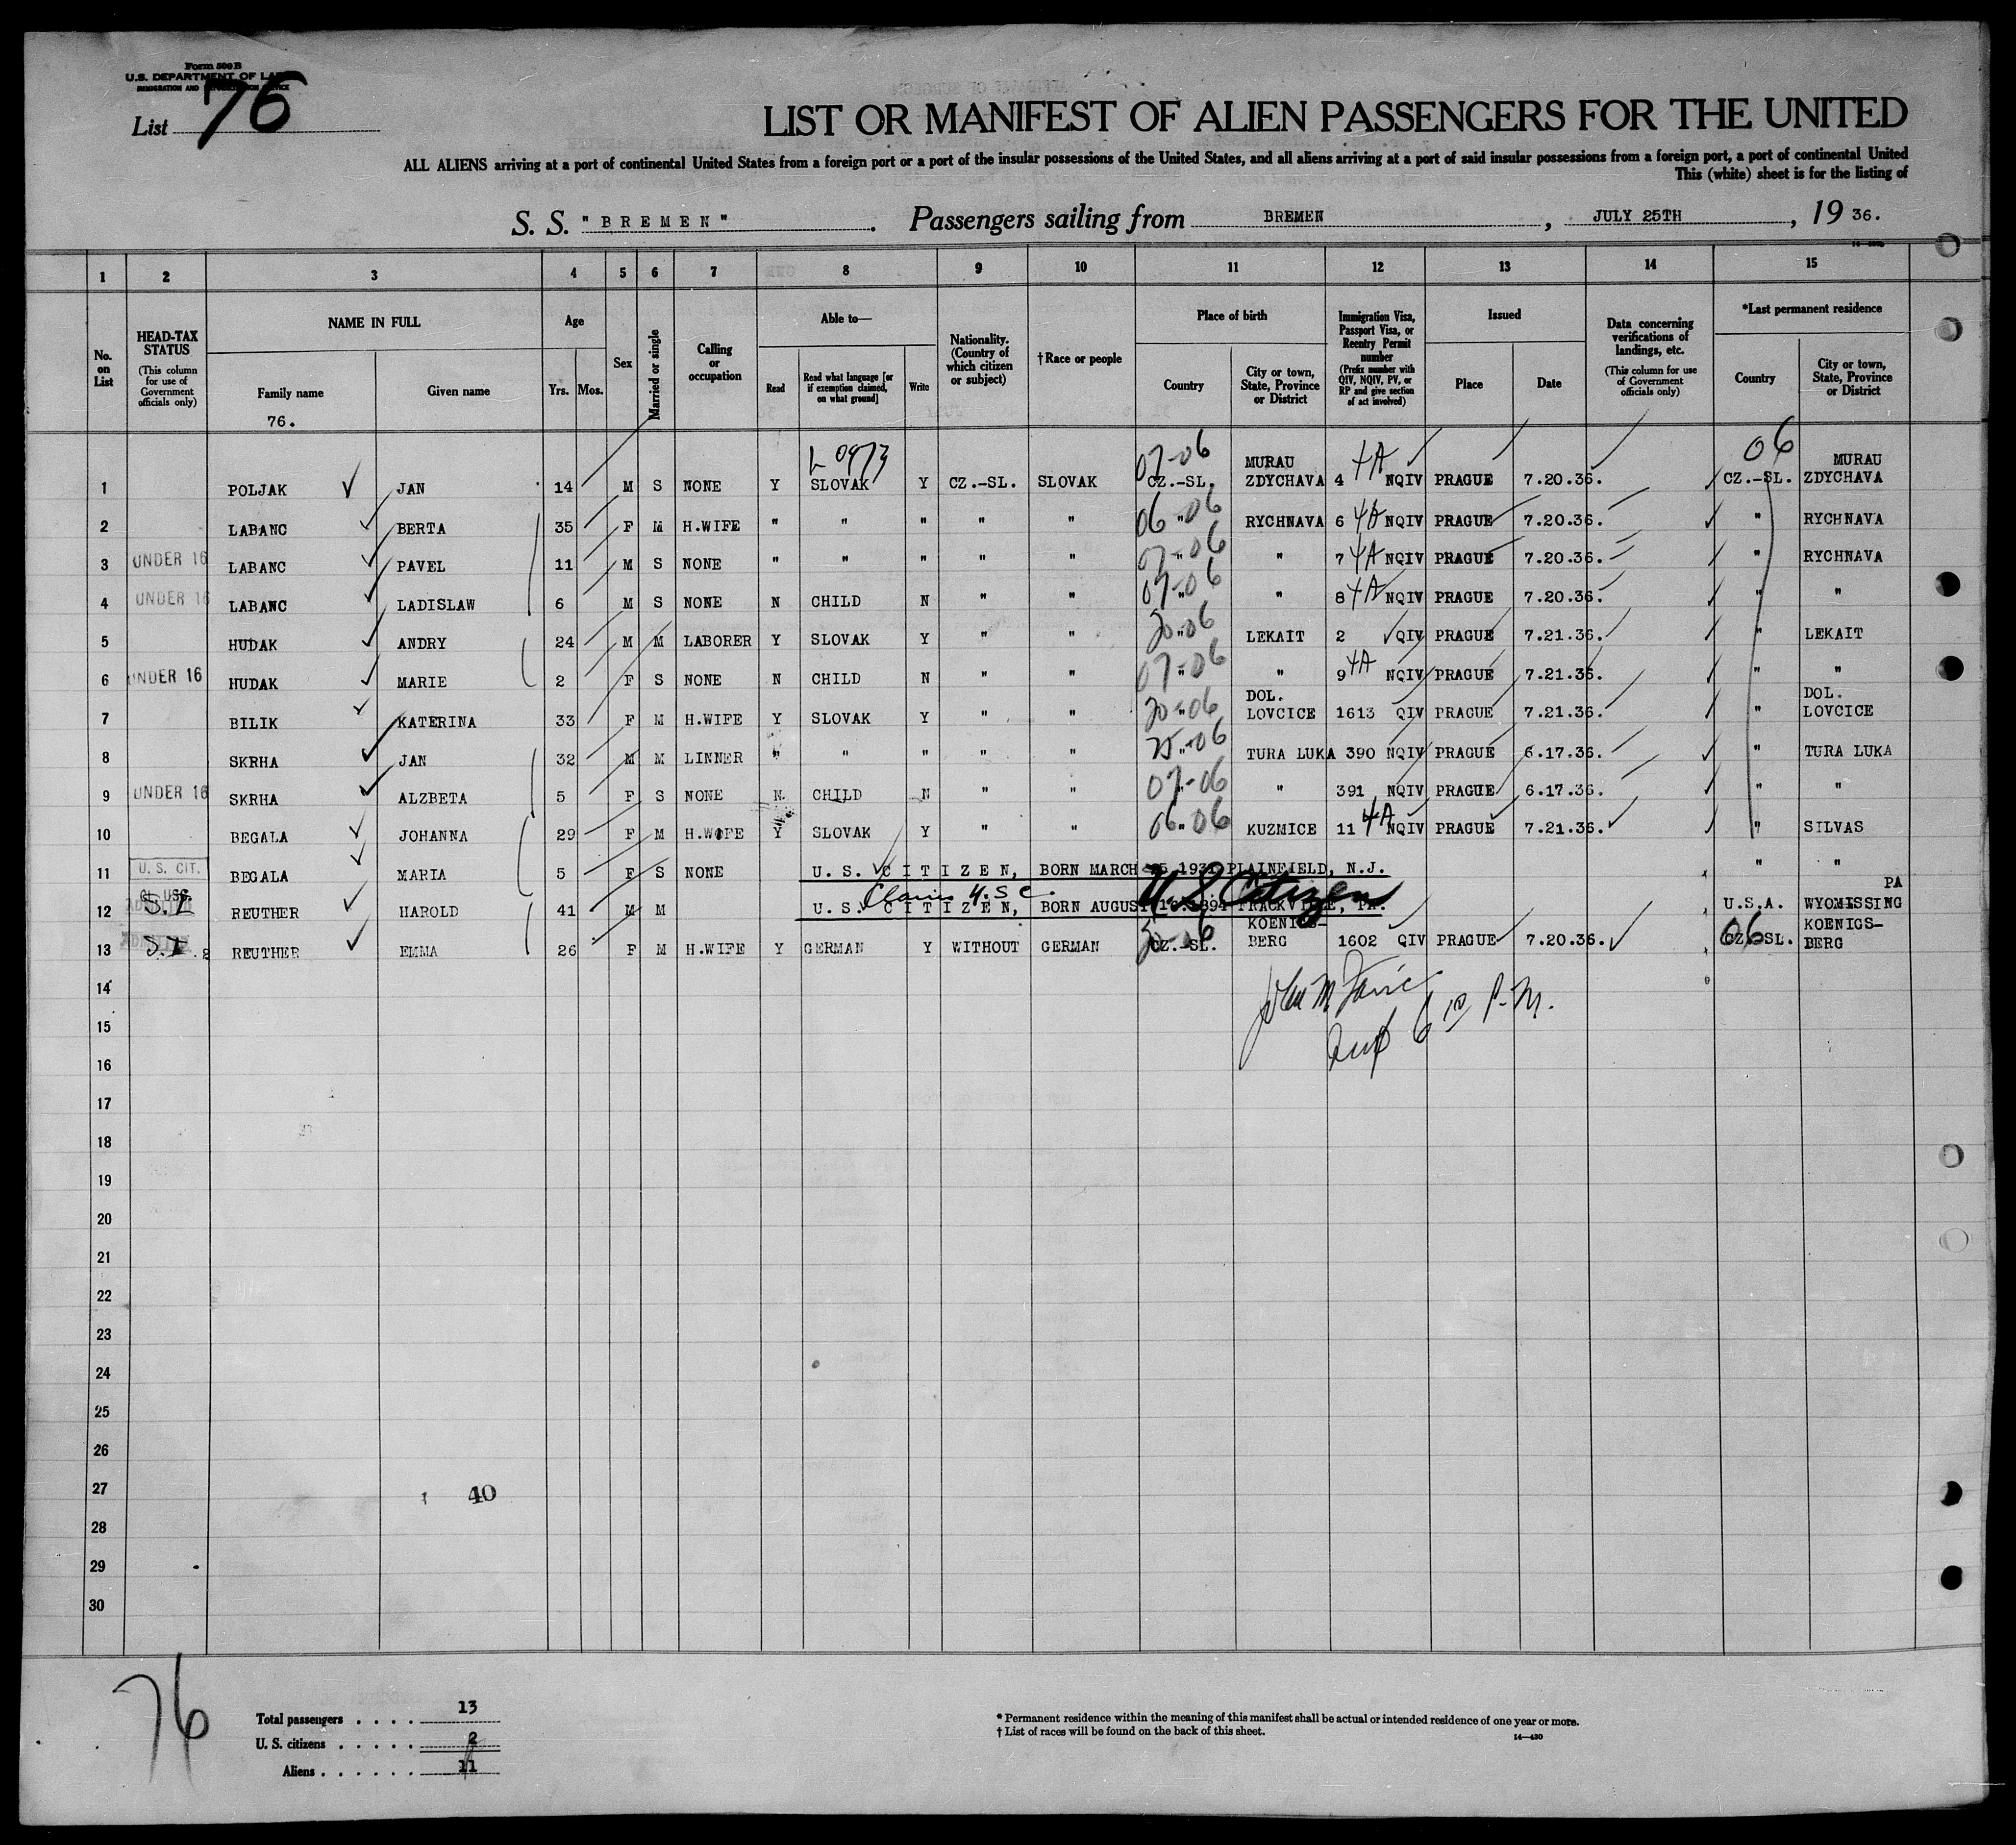 Form 500 B
U.S. DEPARTMENT OF LABOR
IMMIGRATION AND NATURALIZATION SERVICE
List 76
LIST OR MANIFEST OF ALIEN PASSENGERS FOR THE UNITED
ALL ALIENS arriving at a port of continental United States from a foreign port or a port of the insular possessions of the United States, and all aliens arriving at a port of said insular possessions from a foreign port, a port of continental United
This (white) sheet is for the listing of
S. S. "BREMEN". Passengers sailing from BREMEN, JULY 25TH, 19 36.
1 2 3 4 5 6 7 8 9 10 11 12 13 14 15
No. on List
HEAD-TAX STATUS (This column for use of Government officials only)
NAME IN FULL Family name Given name
76.
Age Yrs. Mos.
Sex
Married or single
Calling or occupation
Able to— Read Read what language [or if exemption claimed, on what ground] Write
Nationality. (Country of which citizen or subject)
†Race or people
Place of birth Country City or town, State, Province or District
Immigration Visa, Passport Visa, or Reentry Permit number (Prefix number with QIV, NQIV, PV, or RP and give section of act involved)
Issued Place Date
Data concerning verifications of landings, etc. (This column for use of Government officials only)
*Last permanent residence Country City or town, State, Province or District
07-06 MURAU 4A 06 MURAU
1 POLJAK JAN 14 M S NONE Y SLOVAK Y CZ.-SL. SLOVAK CZ.-SL. ZDYCHAVA 4 NQIV PRAGUE 7.20.36. CZ.-SL. ZDYCHAVA
2 LABANC BERTA 35 F M H.WIFE " " " " " 06 " 06 RYCHNAVA 6 4A NQIV PRAGUE 7.20.36. " RYCHNAVA
3 UNDER 16 LABANC PAVEL 11 M S NONE " " " " " 07 " 06 " 7 4A NQIV PRAGUE 7.20.36. " RYCHNAVA
4 UNDER 16 LABANC LADISLAW 6 M S N CHILD N " " 07 " 06 " 8 4A NQIV PRAGUE 7.20.36. " "
5 HUDAK ANDRY 24 M M LABORER Y SLOVAK Y " " 20 " 06 LEKAIT 2 QIV PRAGUE 7.21.36. " LEKAIT
6 UNDER 16 HUDAK MARIE 2 F S NONE N CHILD N " " 07 " 06 " 9 4A NQIV PRAGUE 7.21.36. " "
DOL. DOL.
7 BILIK KATERINA 33 F M H.WIFE Y SLOVAK Y " " 20 " 06 LOVCICE 1613 QIV PRAGUE 7.21.36. " LOVCICE
8 SKRHA JAN 32 M M LINNER " " " " " 25 " 06 TURA LUKA 390 NQIV PRAGUE 6.17.36. " TURA LUKA
9 UNDER 16 SKRHA ALZBETA 5 F S NONE N. CHILD N " " 07 " 06 " 391 NQIV PRAGUE 6.17.36. " "
10 BEGALA JOHANNA 29 F M H.WIFE Y SLOVAK Y " " 06 " 06 KUZMICE 11 4A NQIV PRAGUE 7.21.36. " SILVAS
11 U. S. CIT. BEGALA MARIA 5 F S NONE U. S. CITIZEN, BORN MARCH 1931 PLAINFIELD, N.J. " "
Claims U.S.C. U S Citizen PA
12 S.I. REUTHER HAROLD 41 M M U. S. CITIZEN, BORN AUGUST 16.1894 FRACKVILLE, PA. U.S.A. WYOMISSING
KOENIGS- KOENIGS-
13 S.I. REUTHER EMMA 26 F M H.WIFE Y GERMAN Y WITHOUT GERMAN CZ.-SL. BERG 1602 QIV PRAGUE 7.20.36. 06 CZ.-SL. BERG
14
15
16
17
18
19
20
21
22
23
24
25
26
27 40
28
29
30
76
Total passengers . . . . 13
U. S. citizens . . . . . 2
Aliens . . . . . . 11
* Permanent residence within the meaning of this manifest shall be actual or intended residence of one year or more.
† List of races will be found on the back of this sheet.
14—430